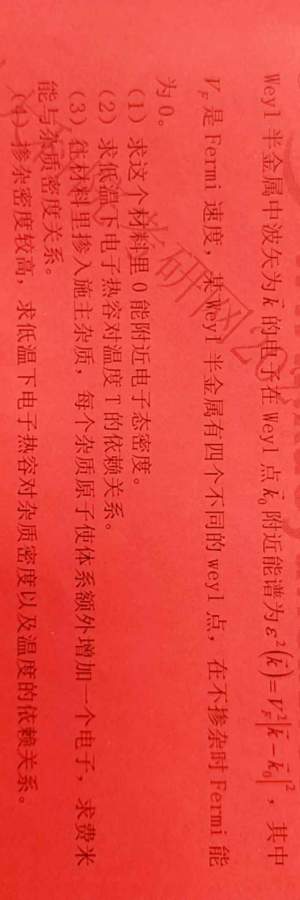 Weyl 半金属中波矢为 $\vec{k}$ 的电子在 Weyl 点 $\vec{k}_0$ 附近能谱为 $\varepsilon^2(\vec{k})=V_F^2|\vec{k}-\vec{k}_0|^2$，其中
$V_F$ 是 Fermi 速度，某 Weyl 半金属有四个不同的 weyl 点，在不掺杂时 Fermi 能
为 0。
（1）求这个材料里 0 能附近电子态密度。
（2）求低温下电子热容对温度 T 的依赖关系。
（3）在材料里掺入施主杂质，每个杂质原子使体系额外增加一个电子，求费米
能与杂质密度关系。
（4）掺杂密度较高，求低温下电子热容对杂质密度以及温度的依赖关系。
考研网